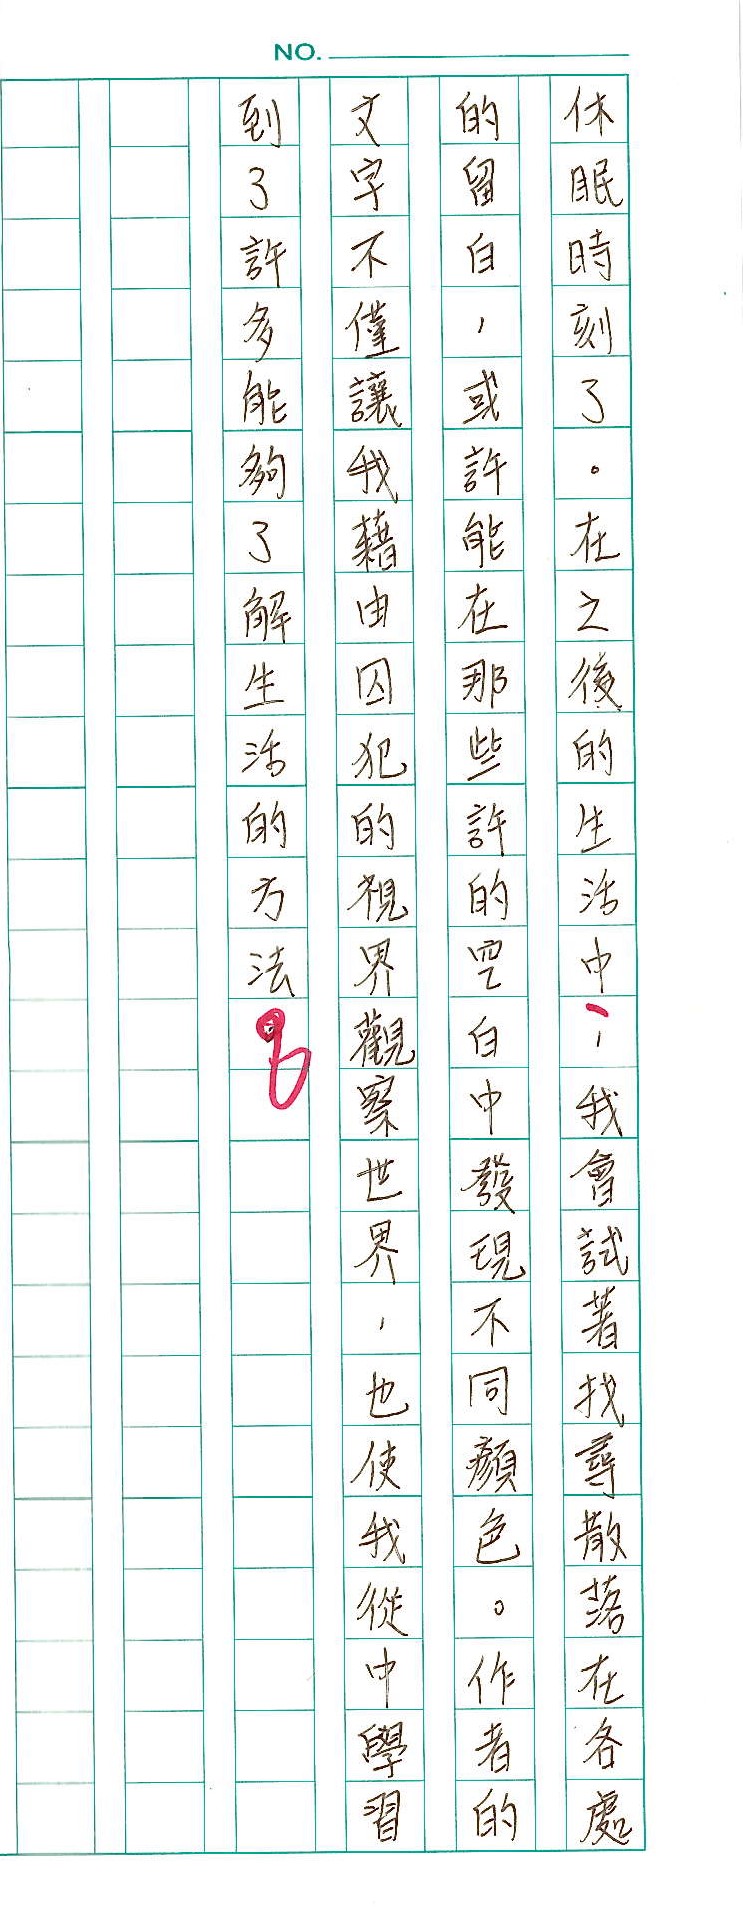 NO.
休眠時刻了。在之後的生活中，我會試著找尋散落在各處
的留白，或許能在那些許的空白中發現不同顏色。作者的
文字不僅讓我藉由囚犯的視界觀察世界，也使我從中學習
到了許多能夠了解生活的方法。